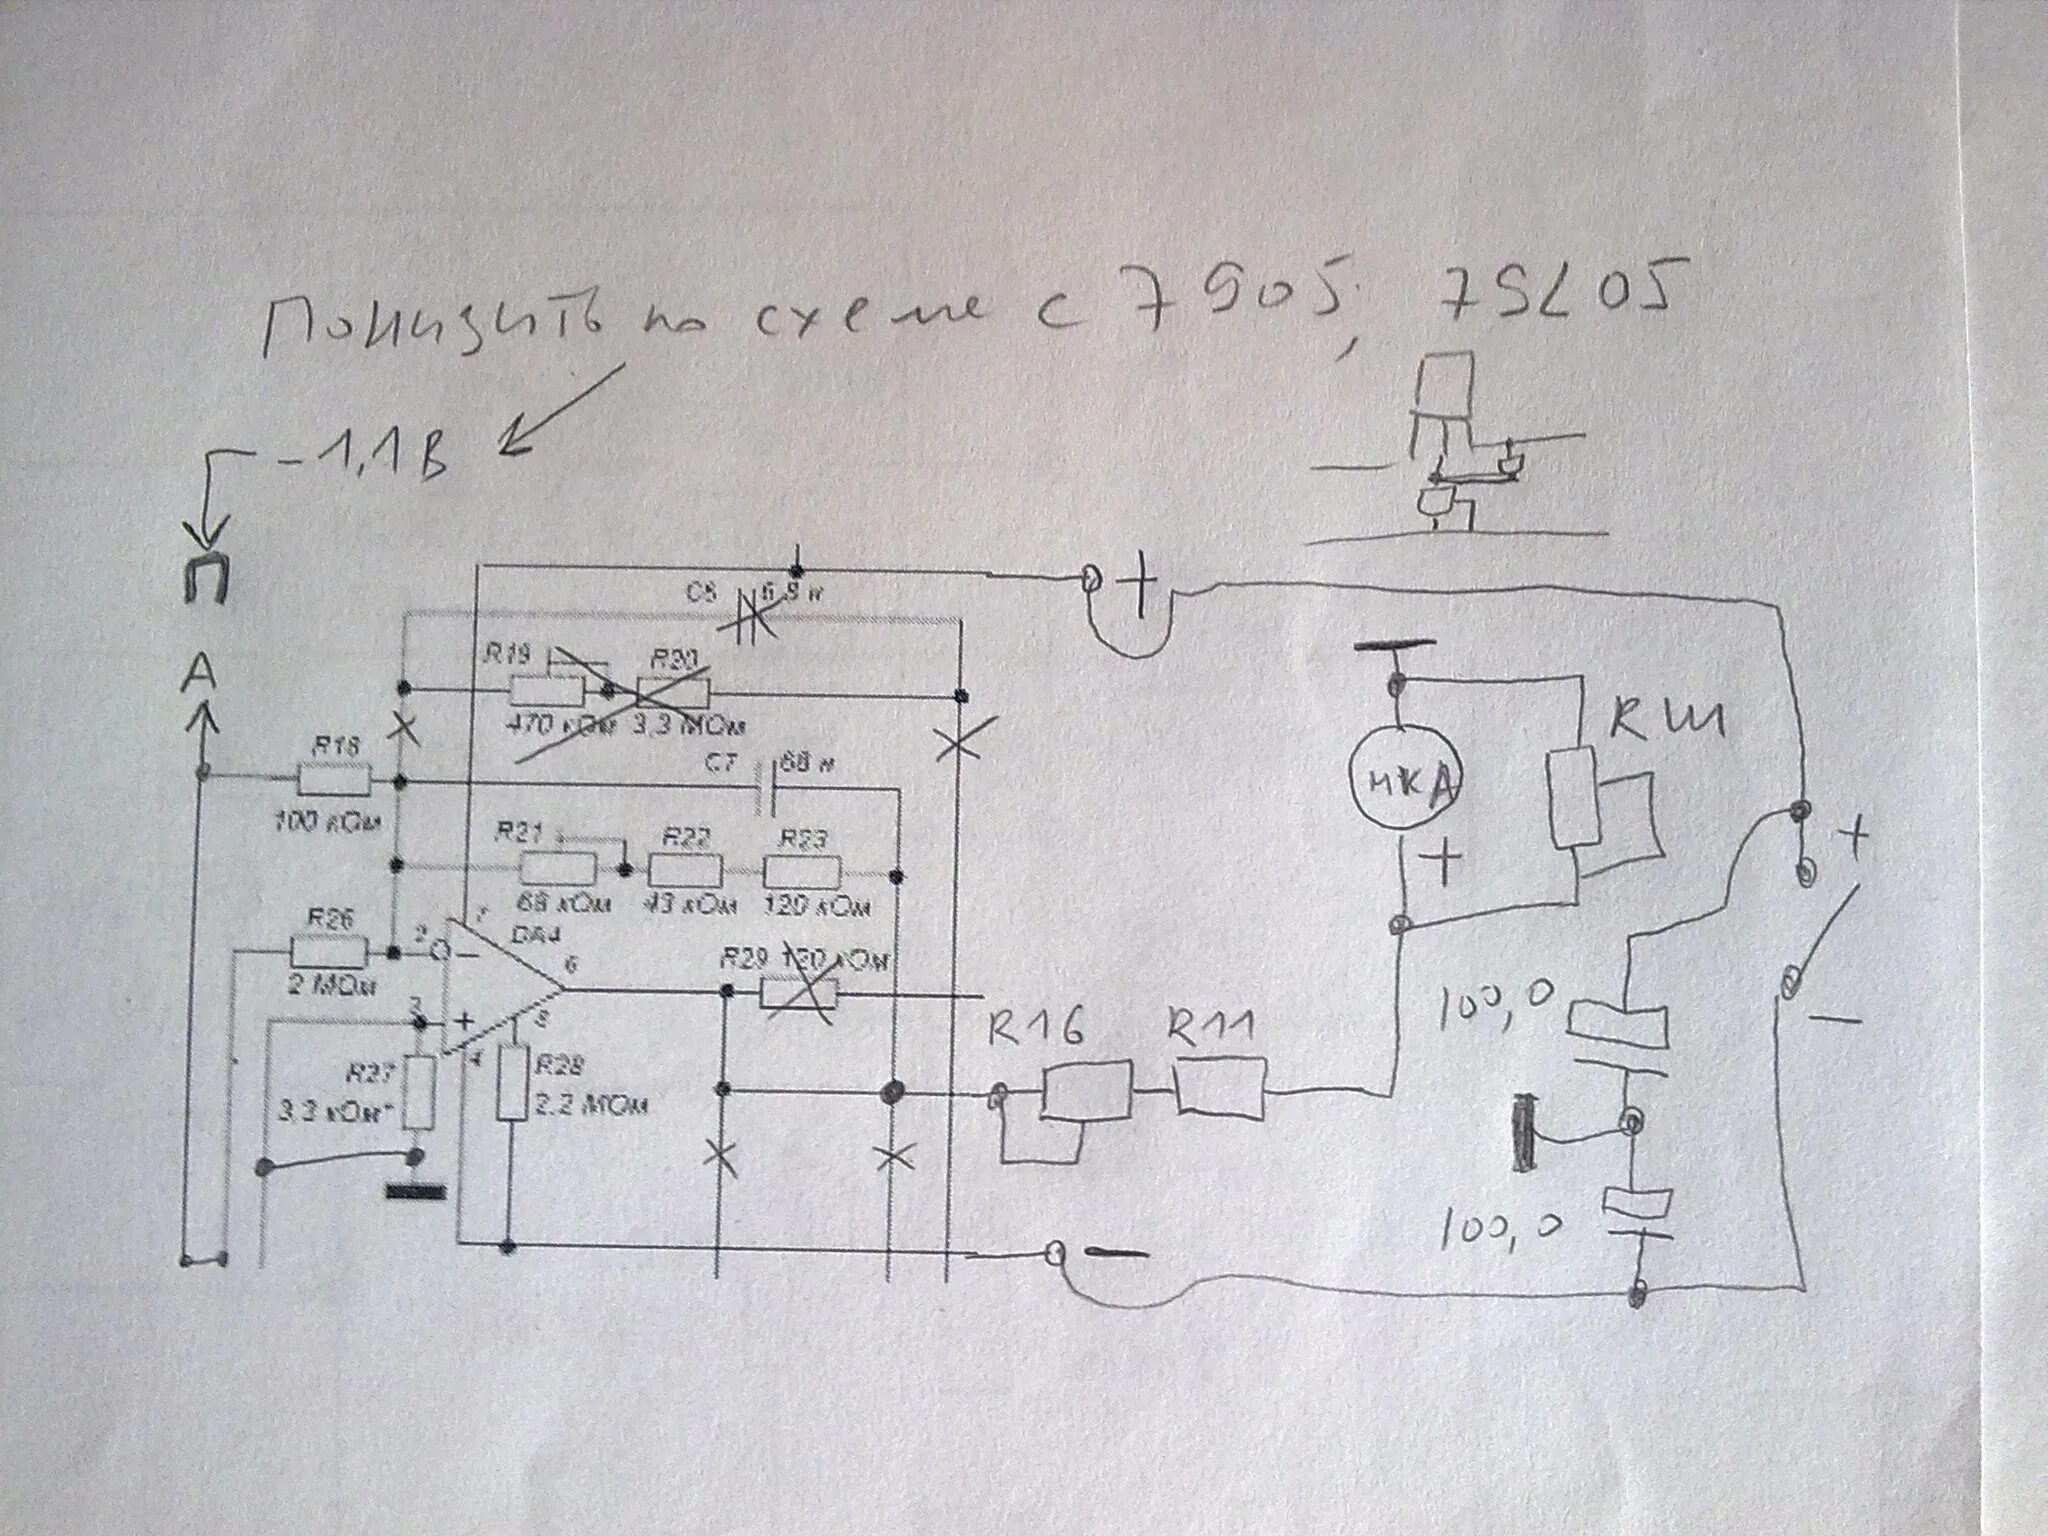 Понизить по схеме с 7905, 79L05
-1,1В
П
А
C6 6,8 н
R19
R20
470 кОм
3,3 МОм
C7 68 н
R18
100 кОм
R21
R22
R23
68 кОм
43 кОм
120 кОм
R26
2 МОм
2
7
DA4
-
6
3
+
8
4
R29 120 кОм
R27
3,3 кОм*
R28
2,2 МОм
+
-
R16
R11
мкА
+
RШ
+
-
100,0
100,0